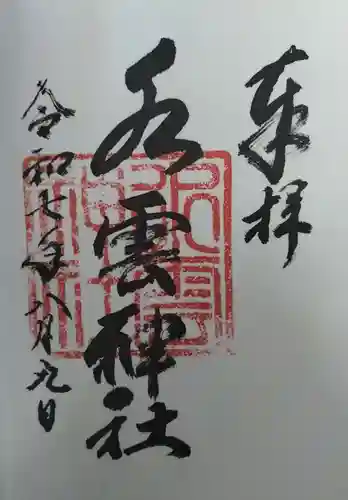 奉拝
氷雲神社
令和七年八月九日